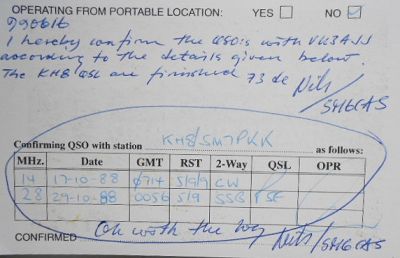 OPERATING FROM PORTABLE LOCATION: YES NO
990616
I hereby confirm the QSO:s with VK3AJJ
according to the details given below.
The KH8 QSL are finished 73 de Nils/
SM6CAS
Confirming QSO with station KH8/SM7PKK as follows:
MHz. Date GMT RST 2-Way QSL OPR
14 17-10-88 0714 5/9/9 CW
28 29-10-88 0056 5/9 SSB PSE
CONFIRMED worth the Nils/SM6CAS